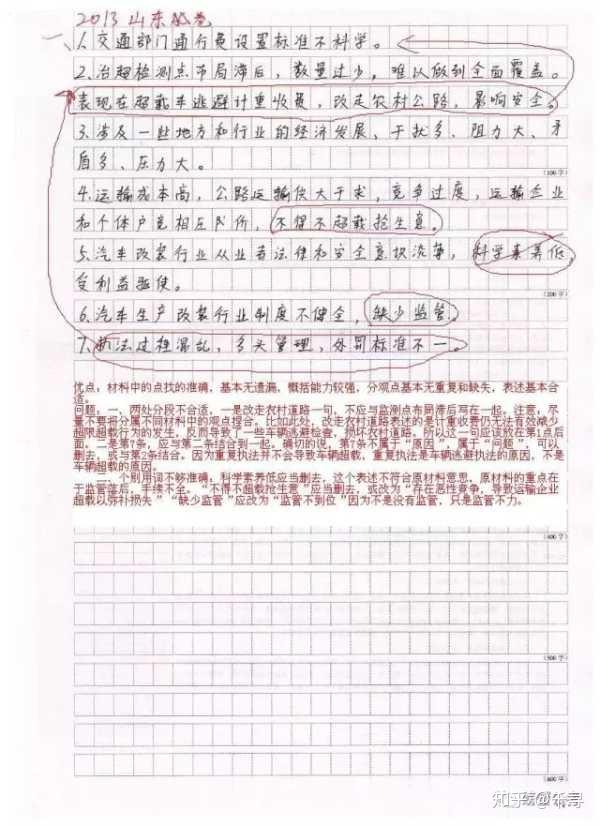 2013 山东试卷
一、1.交通部门通行费设置标准不科学。
2.治超检测点布局滞后，数量过少，难以做到全面覆盖。
表现在超载车逃避计重收费，改走农村公路，影响安全。
3.涉及一些地方和行业的经济发展、干扰多、阻力大、矛
盾多、压力大。
(100字)
4.运输成本高，公路运输供大于求，竞争过度，运输企业
和个体户竞相压价，不得不超载抢生意。
5.汽车改装行业从业者法律和安全意识淡薄，科学素养低，
受利益驱使。
(200字)
6.汽车生产改装行业制度不健全，缺少监管。
7.执法过程混乱，多头管理，处罚标准不一。
优点：材料中的点找的准确，基本无遗漏，概括能力较强，分观点基本无重复和缺失，表述基本合
适。
问题，一、两处分段不合适，一是改走农村道路一句，不应与监测点布局滞后写在一起。注意，尽
量不要将分属不同材料中的观点捏合。比如此处，改走农村道路表述的是计重收费仍无法有效减少
超限超载行为的发生，反而导致了一些车辆逃避检查，损坏农村道路。所以这一句应该放在第1点后
面。二是第7条，应与第二条结合到一起。确切的说，第7条不属于“原因”，属于“问题”，可以
删去，或与第2条结合。因为重复执法并不会导致车辆超载，重复执法是车辆逃避执法的原因，不是
车辆超载的原因。
二、个别用词不够准确：科学素养低应当删去，这个表述不符合原材料意思，原材料的重点在
于监管落后，手续不全。“不得不超载抢生意”应当删去，或改为“存在恶性竞争，导致运输企业
超载以弥补损失”“缺少监管”应改为“监管不到位”因为不是没有监管，只是监管不力。
(400字)
(500字)
(600字)
知乎 @乐寻